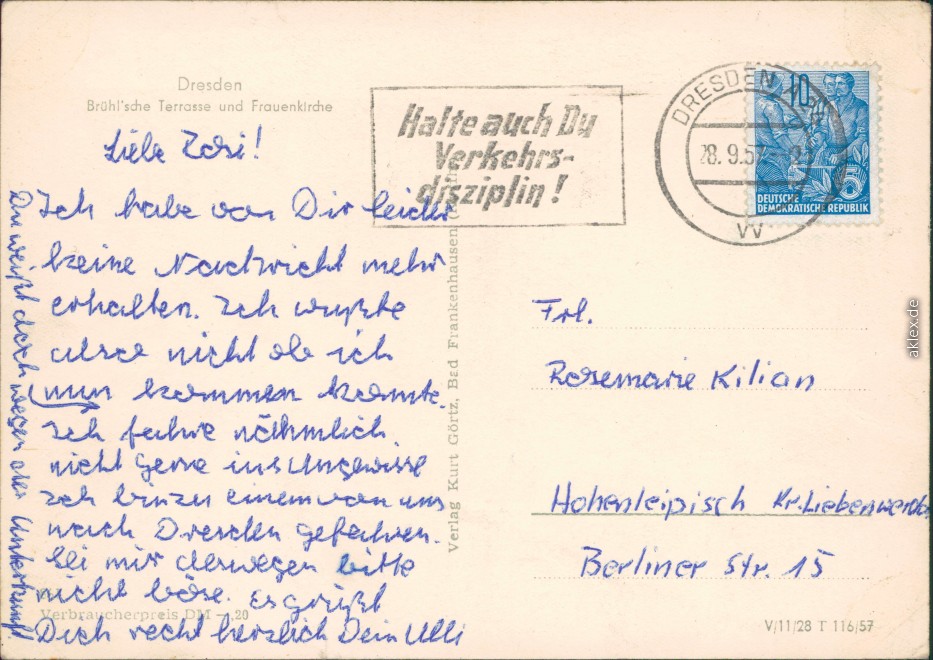 Dresden
Brühl'sche Terrasse und Frauenkirche
Liebe Rosi!
Ich habe von Dir leider
keine Nachricht mehr
erhalten. Ich wußte
also nicht ob ich
nun kommen konnte.
Ich fahre nähmlich
nicht gerne ins Ungewisse
Ich bin zu einem von uns
nach Dresden gefahren.
Sei mir deswegen bitte
nicht böse. Es grüßt
Dich recht herzlich Dein Ulli
Du weißt doch wegen der Unterkunft
Verbraucherpreis DM -,20
Verlag Kurt Görtz, Bad Frankenhausen
Halte auch Du
Verkehrs-
disziplin!
DRESDEN
28.9.57
VV
10
DEUTSCHE
DEMOKRATISCHE REPUBLIK
5
Frl.
Rosemarie Kilian
Hohenleipisch Kr. Liebenwerda
Berliner Str. 15
V/11/28 T 116/57
aklex.de